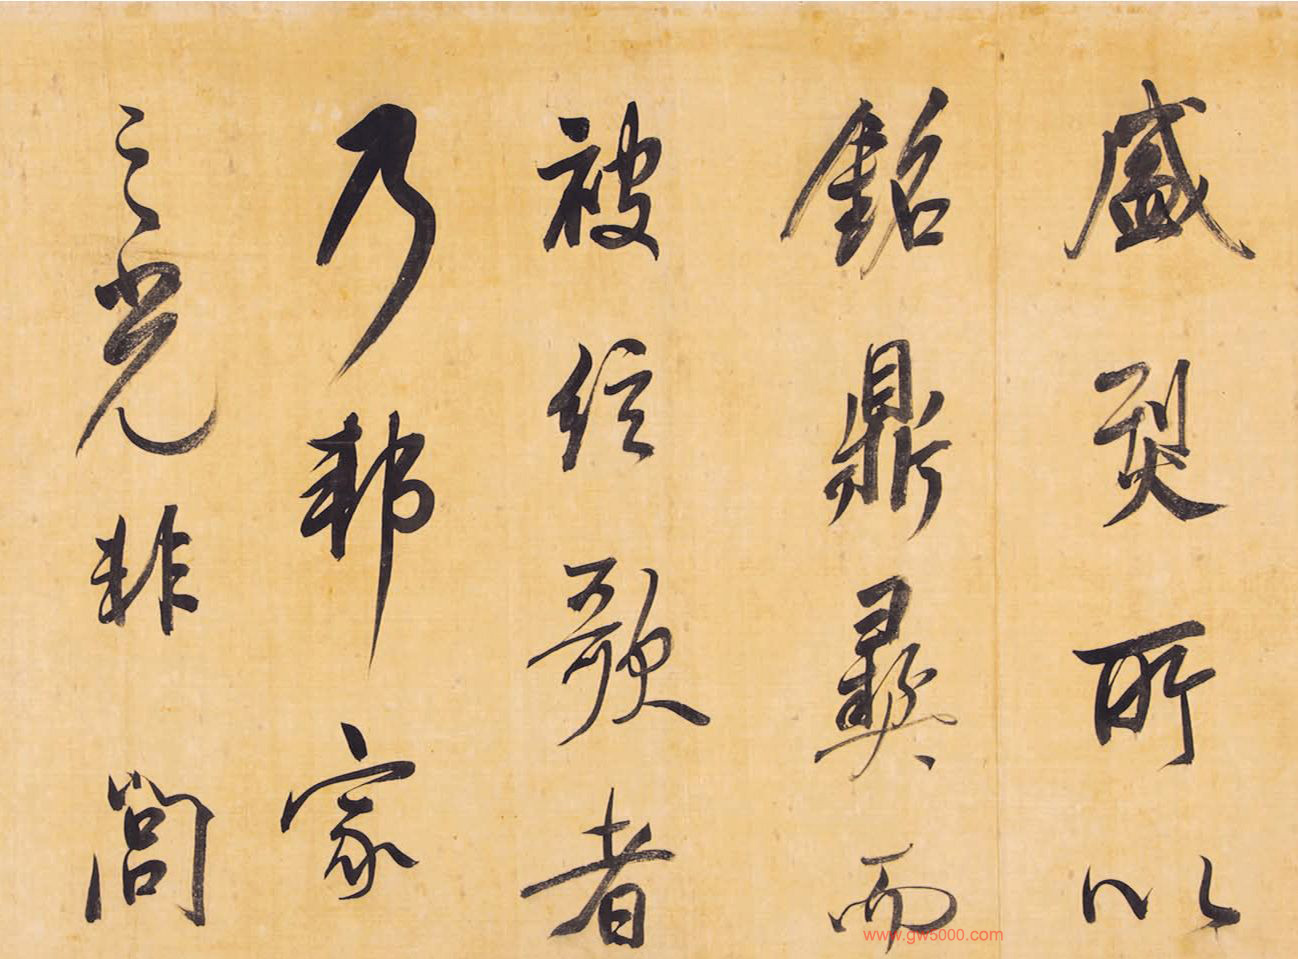 盛烈所以
銘鼎彝而
被絃歌者
乃邦家
之光非閭
www.gw5000.com